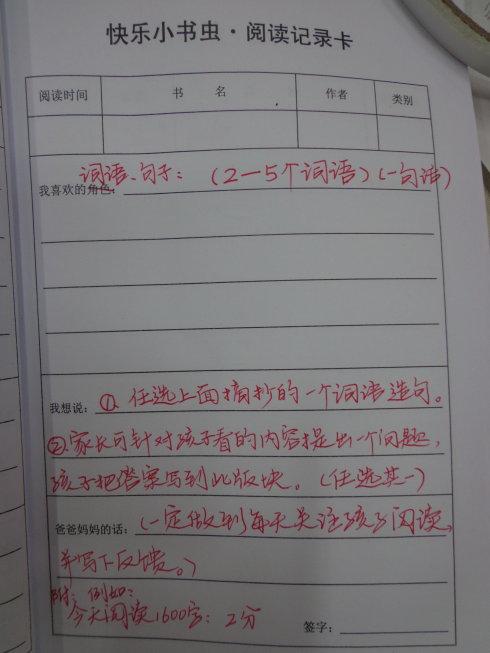 快乐小书虫·阅读记录卡
阅读时间 书 名 作者 类别
词语、句子：（2—5个词语）（一句话）
我喜欢的角色：
我想说：①、任选上面摘抄的一个词语造句。
②、家长可针对孩子看的内容提出一个问题，
孩子把答案写到此版块。（任选其一）
爸爸妈妈的话：（一定做到每天关注孩子阅读，
并写下反馈。）
附：例如：
今天阅读1600字：2分
签字：